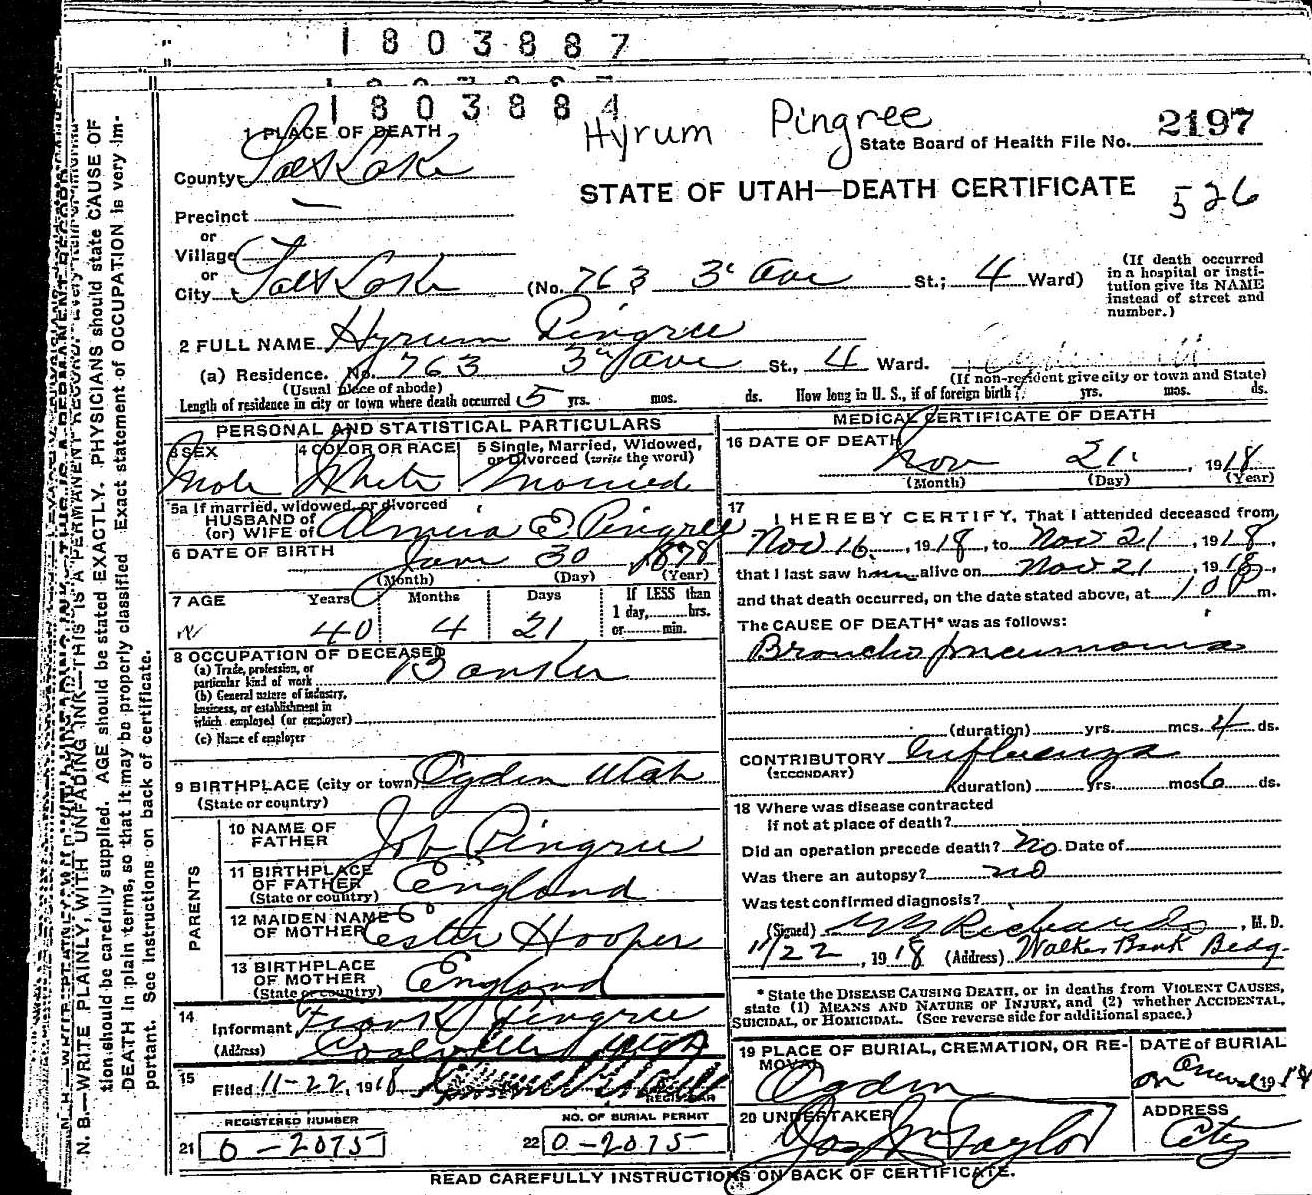 1803887
1803884
Hyrum Pingree
State Board of Health File No. 2197
STATE OF UTAH—DEATH CERTIFICATE 526
1 PLACE OF DEATH
County Salt Lake
Precinct —
or
Village
or
City Salt Lake (No. 763 3d Ave St.; 4 Ward)
(If death occurred in a hospital or insti-
tution give its NAME instead of street and number.)
2 FULL NAME Hyrum Pingree
(a) Residence. No. 763 3rd Ave St., 4 Ward.
(Usual place of abode) (If non-resident give city or town and State)
Length of residence in city or town where death occurred 5 yrs. mos. ds. How long in U. S., if of foreign birth? yrs. mos. ds.
PERSONAL AND STATISTICAL PARTICULARS
3 SEX Male
4 COLOR OR RACE White
5 Single, Married, Widowed, or Divorced (write the word) Married
5a If married, widowed, or divorced
HUSBAND of
(or) WIFE of Almira E. Pingree
6 DATE OF BIRTH
30 1878
(Month) (Day) (Year)
7 AGE Years Months Days If LESS than
1 day, hrs.
or min.
40 4 21
8 OCCUPATION OF DECEASED
(a) Trade, profession, or particular kind of work Banker
(b) General nature of industry, business, or establishment in which employed (or employer)
(c) Name of employer
9 BIRTHPLACE (city or town) Ogden Utah
(State or country)
PARENTS
10 NAME OF FATHER Job Pingree
11 BIRTHPLACE OF FATHER England
(State or country)
12 MAIDEN NAME OF MOTHER Ester Hooper
13 BIRTHPLACE OF MOTHER England
(State or country)
14
Informant Frank Pingree
(Address) Coalville Utah
15
Filed 11-22, 1918
REGISTRAR
REGISTERED NUMBER
21 0-2075
NO. OF BURIAL PERMIT
22 0-2075
MEDICAL CERTIFICATE OF DEATH
16 DATE OF DEATH
Nov 21, 1918
(Month) (Day) (Year)
17
I HEREBY CERTIFY, That I attended deceased from
Nov 16, 1918, to Nov 21, 1918,
that I last saw him alive on Nov 21, 1918,
and that death occurred, on the date stated above, at 10 P m.
The CAUSE OF DEATH* was as follows:
Broncho pneumonia
(duration) yrs. mos. 4 ds.
CONTRIBUTORY Influenza
(SECONDARY)
(duration) yrs. mos. 6 ds.
18 Where was disease contracted
if not at place of death?
Did an operation precede death? No Date of
Was there an autopsy? no
Was test confirmed diagnosis?
(Signed) Richards, M. D.
11/22, 1918 (Address) Walker Bank Bldg.
* State the DISEASE CAUSING DEATH, or in deaths from VIOLENT CAUSES,
state (1) MEANS AND NATURE OF INJURY, and (2) whether ACCIDENTAL,
SUICIDAL, or HOMICIDAL. (See reverse side for additional space.)
19 PLACE OF BURIAL, CREMATION, OR RE-
MOVAL
Ogden
DATE of BURIAL
on 191
20 UNDERTAKER
Jos Wm Taylor
ADDRESS
City
READ CAREFULLY INSTRUCTIONS ON BACK OF CERTIFICATE.
N. B.—WRITE PLAINLY, WITH UNFADING INK—THIS IS A PERMANENT RECORD.
tion should be carefully supplied. AGE should be stated EXACTLY. PHYSICIANS should state CAUSE OF
DEATH in plain terms, so that it may be properly classified. Exact statement of OCCUPATION is very im-
portant. See instructions on back of certificate.